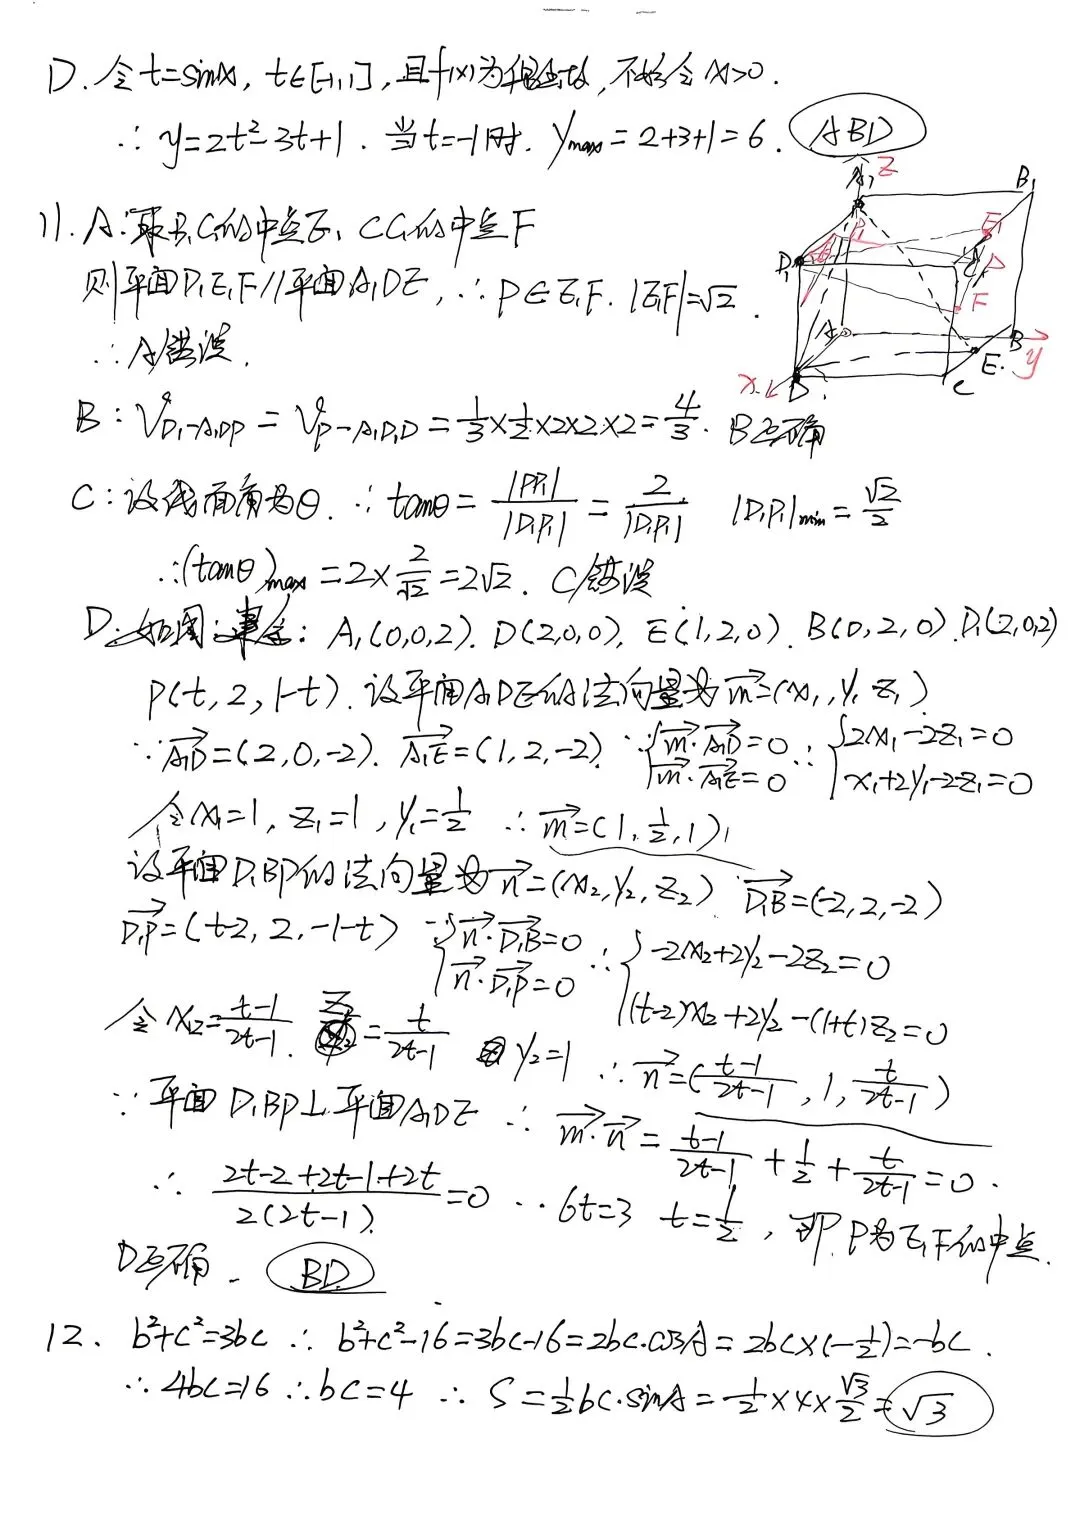 D. 令t=sinx, t∈[-1,1], 且f(x)为偶函数, 不妨令x>0.
∴ y=2t²-3t+1. 当t=-1时. ymax=2+3+1=6. ABD
11. A:取B₁C₁的中点E₁ CC₁的中点F
则平面D₁E₁F//平面A₁DE, ∴P∈E₁F. |E₁F|=√2.
∴A错误.
B: V_{D₁-A₁DP} = V_{P-A₁D₁D} = 1/3×1/2×2×2×2=4/3. B正确
C:设线面角为θ. ∴ tanθ= |PP₁|/|D₁P₁| = 2/|D₁P₁| |D₁P₁|min= √2/2
∴(tanθ)max=2×2/√2=2√2. C错误
D.如图建系: A₁(0,0,2). D(2,0,0). E(1,2,0). B(0,2,0). D₁(2,0,2)
P(t,2,1-t). 设平面A₁DE的法向量为m=(x₁,y₁,z₁)
∵A₁D=(2,0,-2). A₁E=(1,2,-2). ∴{m·A₁D=0 m·A₁E=0 ∴{2x₁-2z₁=0 x₁+2y₁-2z₁=0
令x₁=1, z₁=1, y₁=1/2 ∴ m=(1,1/2,1)
设平面D₁BP的法向量为n=(x₂,y₂,z₂) D₁B=(-2,2,-2)
D₁P=(t-2,2,-1-t) ∴{n·D₁B=0 n·D₁P=0 ∴{-2x₂+2y₂-2z₂=0 (t-2)x₂+2y₂-(1+t)z₂=0
令x₂=(t-1)/(2t-1). z₂=t/(2t-1) y₂=1 ∴ n=((t-1)/(2t-1),1,t/(2t-1))
∵平面D₁BP⊥平面A₁DE ∴ m·n=(t-1)/(2t-1)+1/2+t/(2t-1)=0.
∴ (2t-2+2t-1+2t)/(2(2t-1))=0 ∴6t=3 t=1/2, 即P为E₁F的中点.
D正确. BD
12. b²+c²=3bc ∴ b²+c²-16=3bc-16=2bc·cosA=2bc×(-1/2)=-bc.
∴4bc=16 ∴bc=4 ∴ S=1/2bc·sinA=1/2×4×√3/2=√3
A₁
z
B₁
E₁
P₁
D₁
C₁
P
F
A
B
y
E
C
x
D